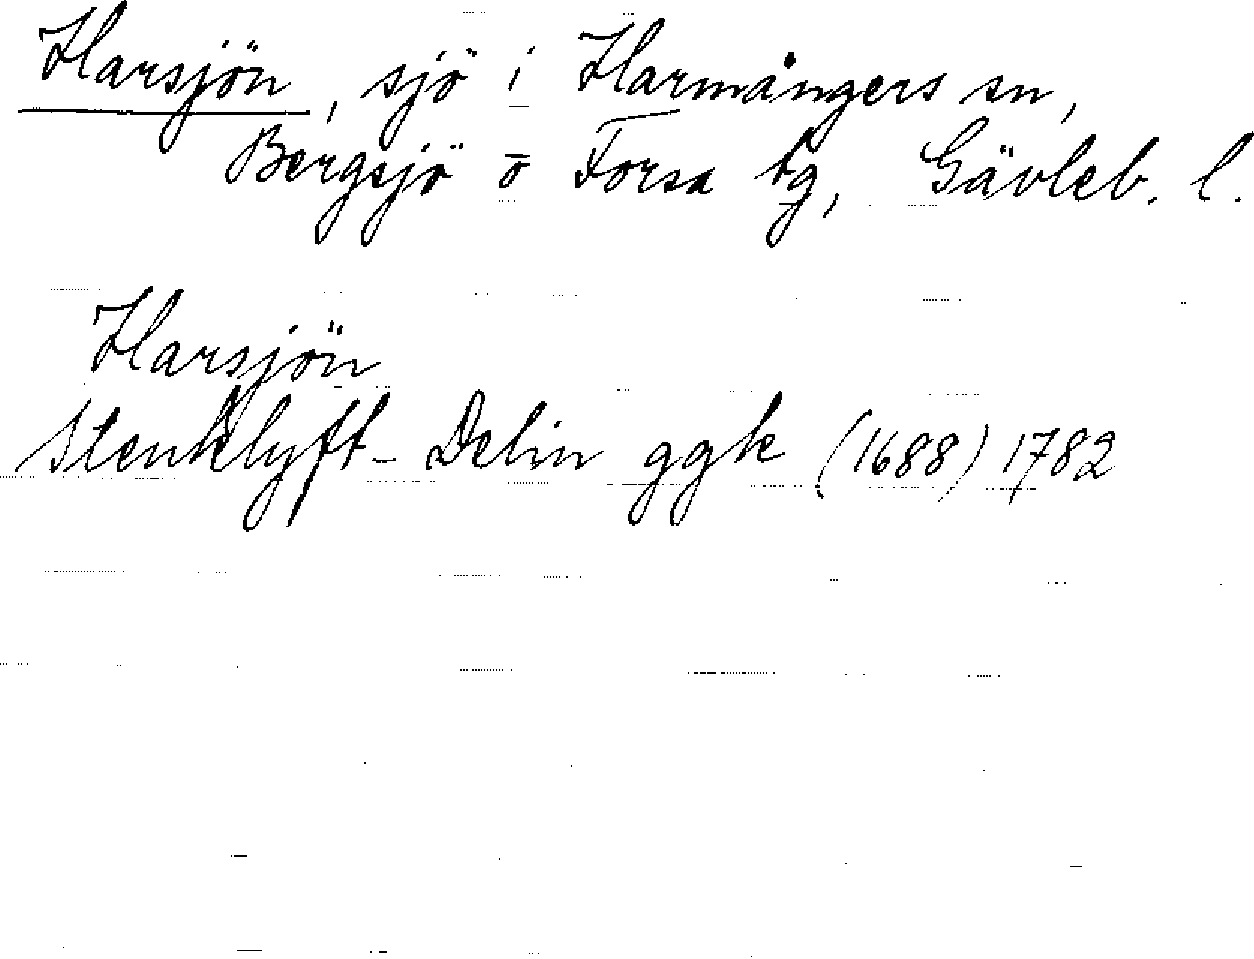 Harsjön, sjö i Harmångers sn,
Bergsjö o Forsa tg, Gävleb. l.
Harsjön
Stenklyft - Delin ggk (1688) 1782